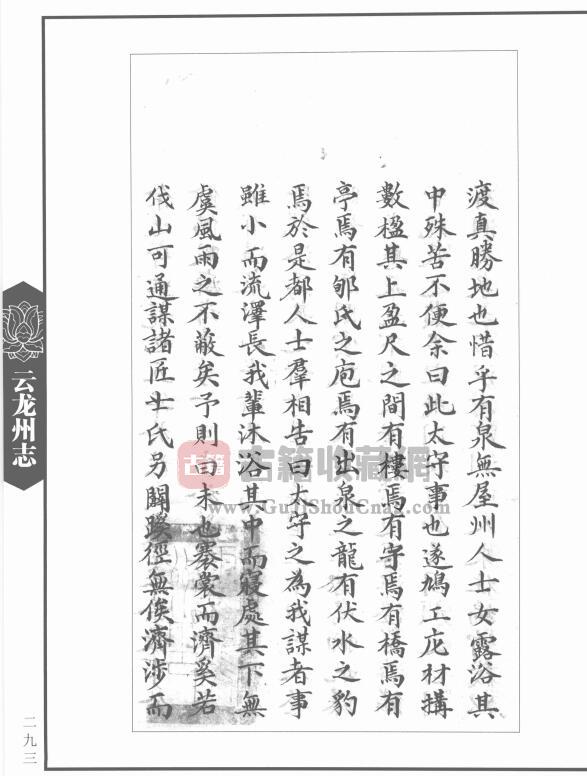 渡真勝地也惜乎有泉無屋州人士女露浴其
中殊苦不便余曰此太守事也遂鳩工庀材搆
數楹其上盈尺之間有樓焉有守焉有橋焉有
亭焉有郇氏之庖焉有出泉之龍有伏水之豹
焉於是都人士羣相告曰太守之為我謀者事
雖小而流澤長我輩沐浴其中而寢處其下無
虞風雨之不蔽矣予則曰未也褰裳而濟奚若
伐山可通謀諸匠士氏另闢蹊徑無俟濟涉而
云龙州志
二九三
古籍
古籍收藏网
www.GujiShouCang.com